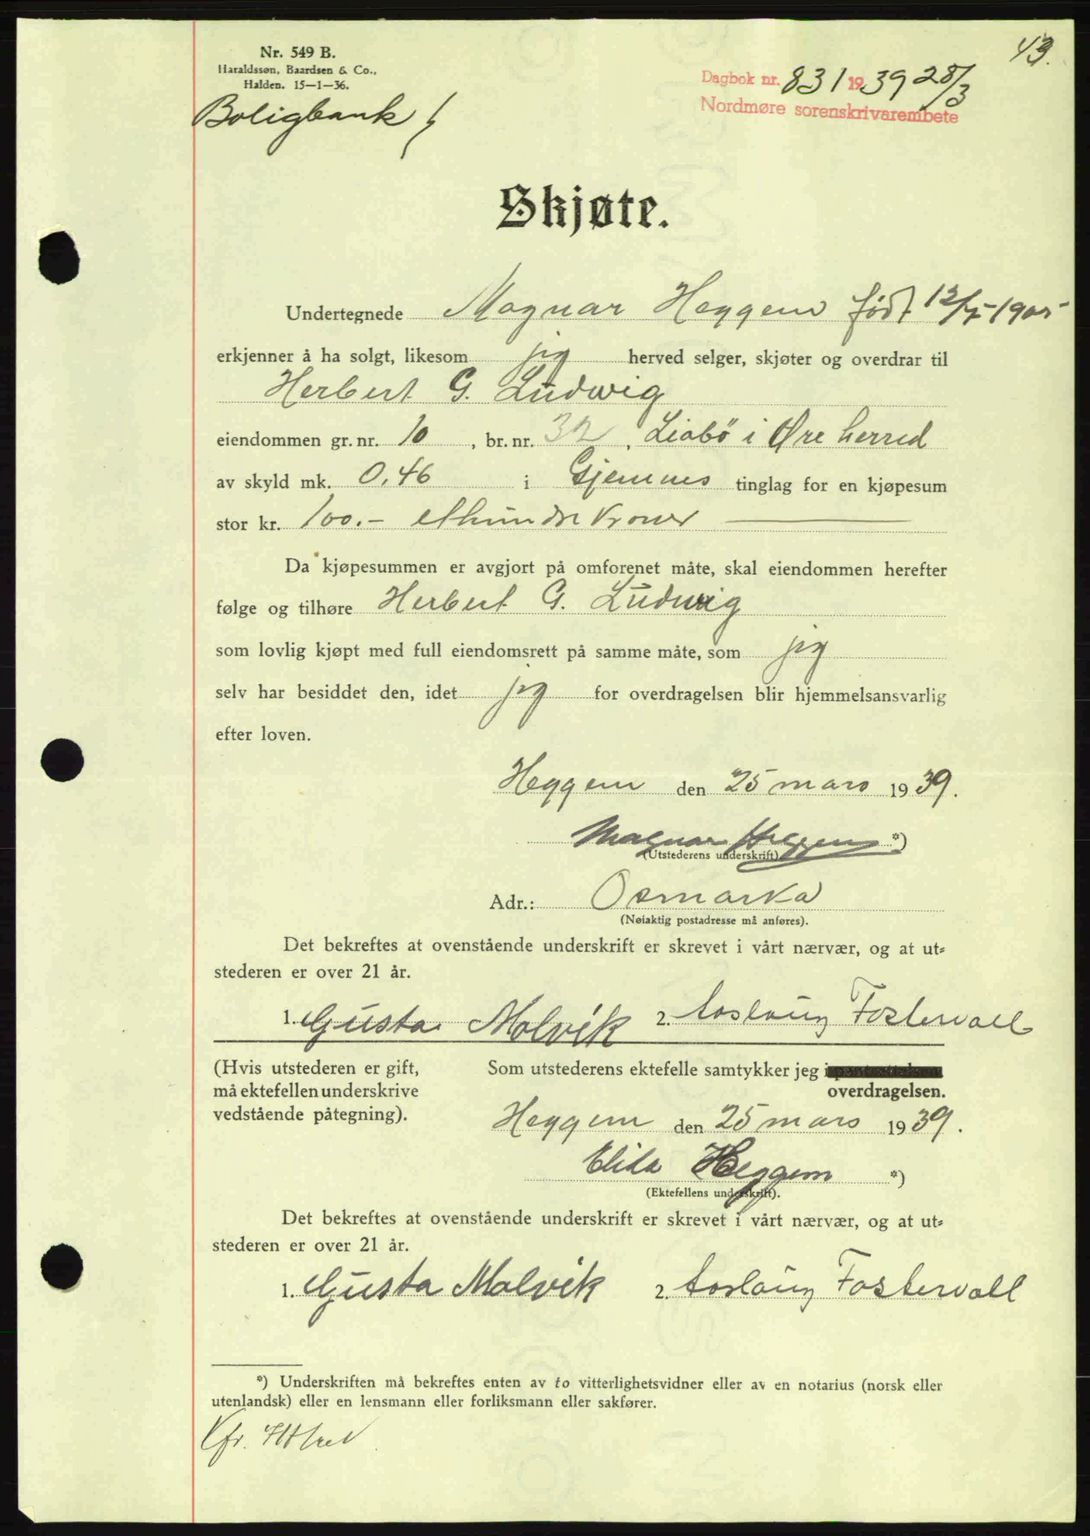 43.
Nr. 549 B.
Haraldssøn, Baardsen & Co.,
Halden. 15—1—36.
Dagbok nr. 831 1939 28/3
Nordmøre sorenskrivarembete
Boligbank
Skjøte.
Undertegnede Magnar Heggem født 12/5-1905
erkjenner å ha solgt, likesom jeg herved selger, skjøter og overdrar til
Herbert G. Ludwig
eiendommen gr. nr. 10, br. nr. 32, Liabø i Øre herred
av skyld mk. 0,46 i Gjemnes tinglag for en kjøpesum
stor kr. 100.- ethundre kroner
Da kjøpesummen er avgjort på omforenet måte, skal eiendommen herefter
følge og tilhøre Herbert G. Ludwig
som lovlig kjøpt med full eiendomsrett på samme måte, som jeg
selv har besiddet den, idet jeg for overdragelsen blir hjemmelsansvarlig
efter loven.
Heggem den 25 mars 1939.
Magnar Heggem *)
(Utstederens underskrift)
Adr.: Osmarka
(Nøiaktig postadresse må anføres).
Det bekreftes at ovenstående underskrift er skrevet i vårt nærvær, og at ut-
stederen er over 21 år.
1. Gusta Malvik 2. Aaslaug Fostervoll
(Hvis utstederen er gift,
må ektefellen underskrive
vedstående påtegning).
Som utstederens ektefelle samtykker jeg i
overdragelsen.
Heggem den 25 mars 1939.
Elida Heggem *)
(Ektefellens underskrift).
Det bekreftes at ovenstående underskrift er skrevet i vårt nærvær, og at ut-
stederen er over 21 år.
1. Gusta Malvik 2. Aaslaug Fostervoll
*) Underskriften må bekreftes enten av to vitterlighetsvidner eller av en notarius (norsk eller
utenlandsk) eller en lensmann eller forliksmann eller sakfører.